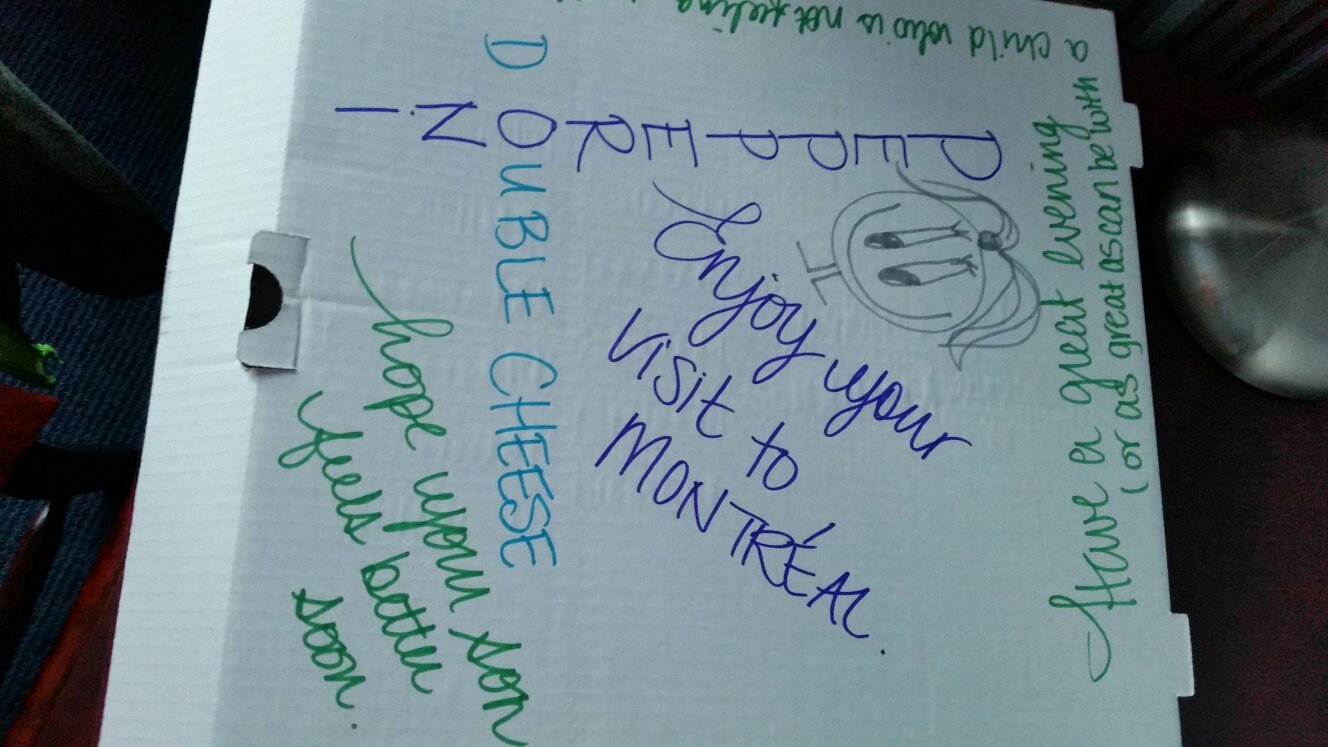 Have a great evening
(or as great as can be with
a child who is not feeling
PEPPERONI
DOUBLE CHEESE
Enjoy your
visit to
MONTRÉAL.
hope your son
feels better
soon.